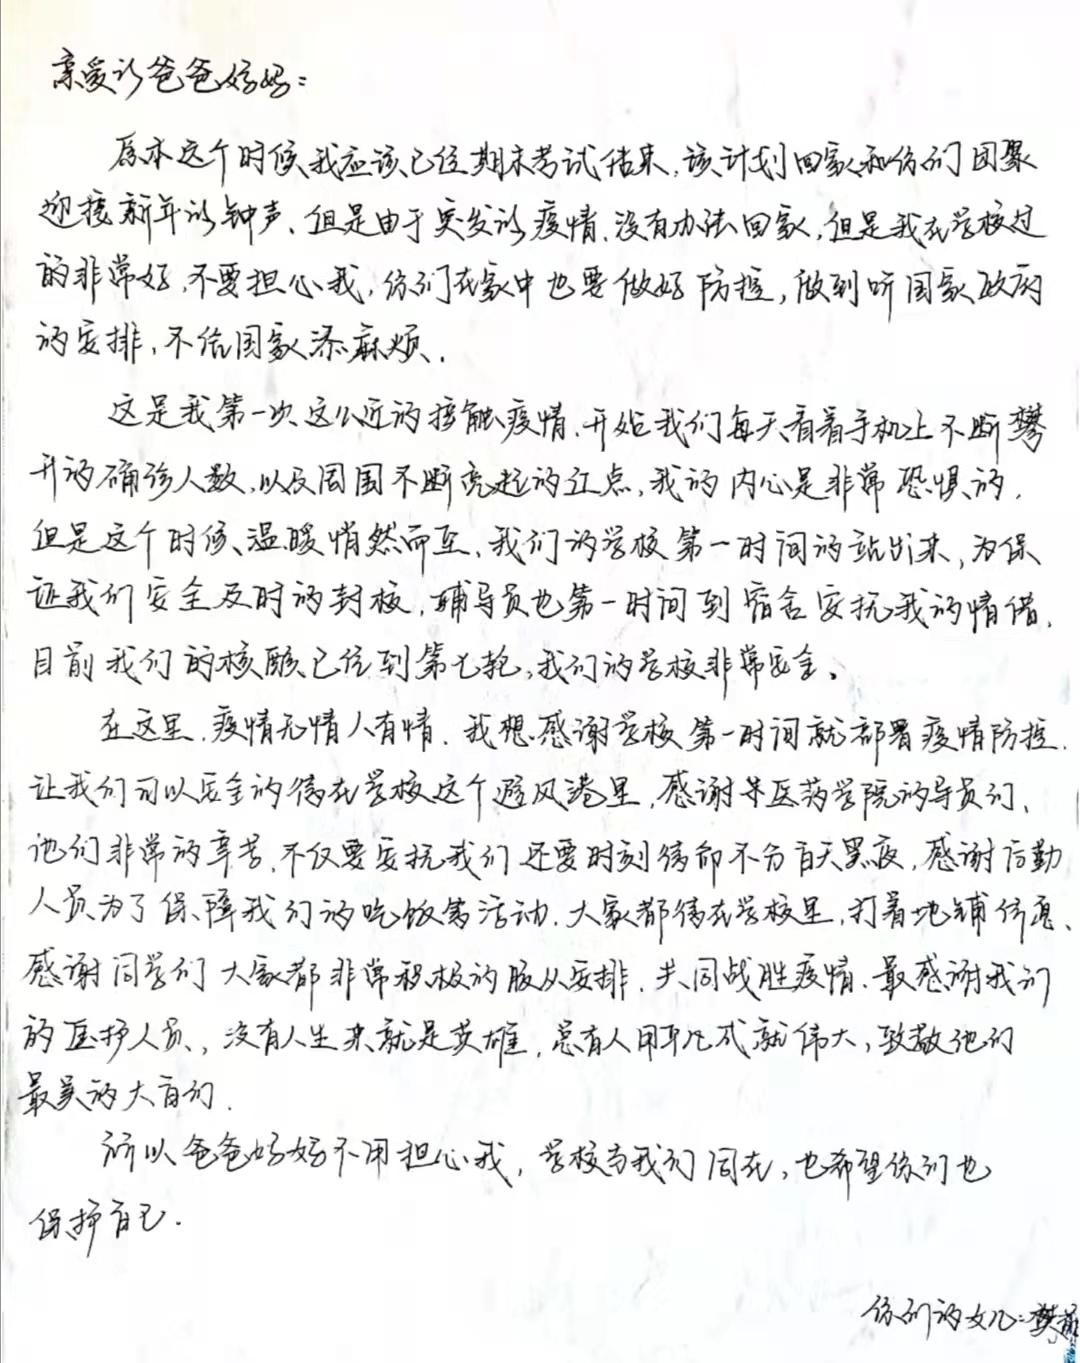 亲爱的爸爸妈妈：
原本这个时候我应该已经期末考试结束，该计划回家和你们团聚
迎接新年的钟声，但是由于突发的疫情，没有办法回家，但是我在学校过
的非常好，不要担心我，你们在家中也要做好防控，做到听国家政府
的安排，不给国家添麻烦．
这是我第一次这么近的接触疫情．开始我们每天看着手机上不断攀
升的确诊人数，以及周围不断亮起的红点，我的内心是非常恐惧的．
但是这个时候、温暖悄然而至，我们的学校第一时间的站出来，为保
证我们安全及时的封校，辅导员也第一时间到宿舍安抚我的情绪，
目前我们的核酸已经到第七轮，我们的学校非常安全。
在这里．疫情无情人有情．我想感谢学校第一时间就部署疫情防控．
让我们可以安全的待在学校这个避风港里．感谢医药学院的导员们、
他们非常的辛苦．不仅要安抚我们还要时刻待命不分白天黑夜．感谢后勤
人员为了保障我们的吃饭等活动．大家都待在学校里，打着地铺休息、
感谢同学们大家都非常积极的服从安排．共同战胜疫情．最感谢我们
的医护人员，没有人生来就是英雄，总有人用平凡成就伟大，致敬他们
最美的大白们．
所以爸爸妈妈不用担心我，学校与我们同在，也希望你们也
保护自己．
你们的女儿：樊